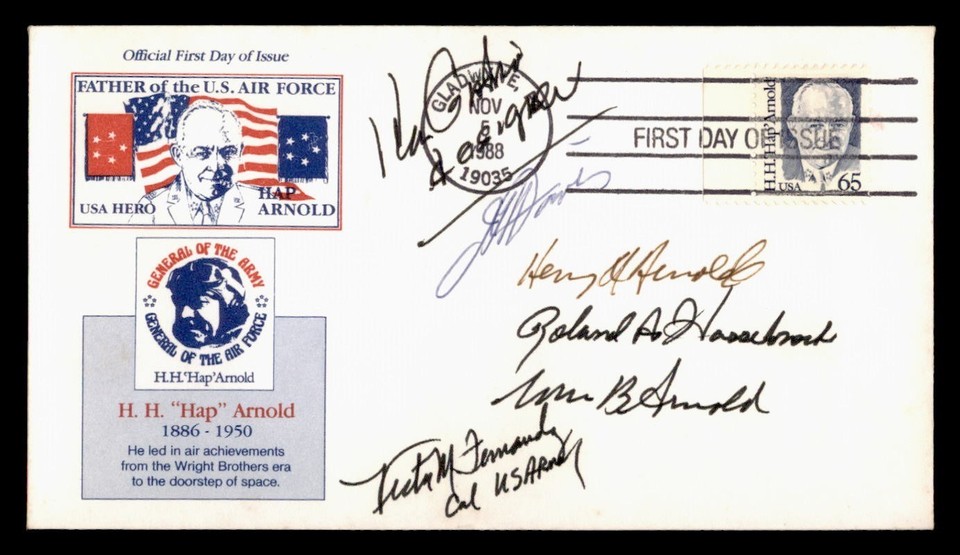 Official First Day of Issue
FATHER of the U.S. AIR FORCE
USA HERO
HAP
ARNOLD
GENERAL OF THE ARMY
GENERAL OF THE AIR FORCE
H.H.'Hap' Arnold
H. H. “Hap” Arnold
1886 - 1950
He led in air achievements
from the Wright Brothers era
to the doorstep of space.
NOV
5
1988
19035
designer
FIRST DAY OF ISSUE
H.H.'Hap' Arnold
USA
65
Henry H Arnold
Roland A Hassebrock
B Arnold
M Fernandez
Col US Army